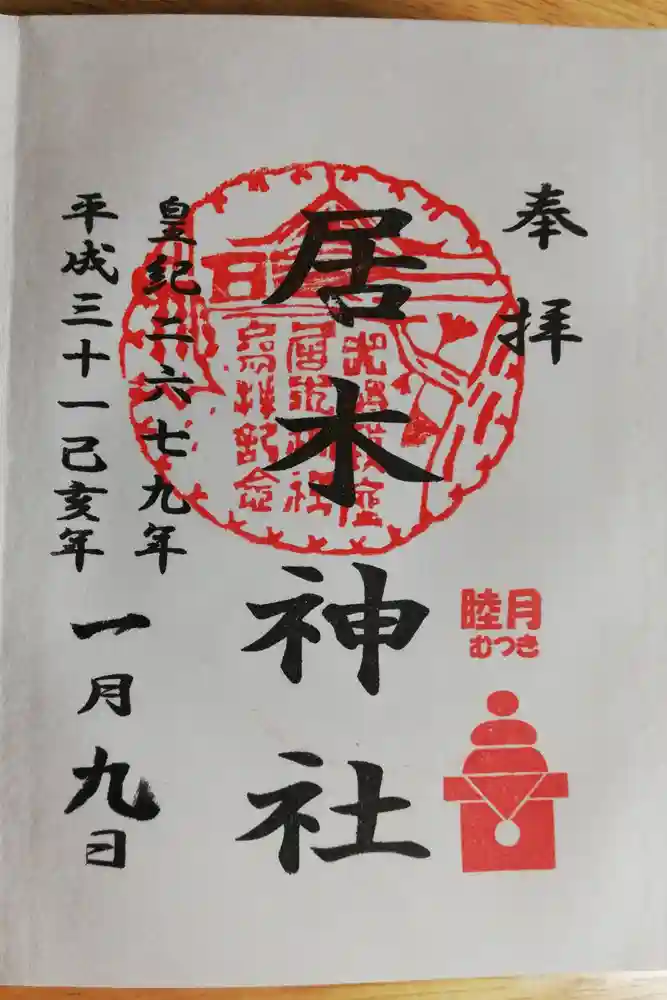 奉拝
居木神社
皇紀二六七九年
平成三十一己亥年
一月九日
睦月
むつき